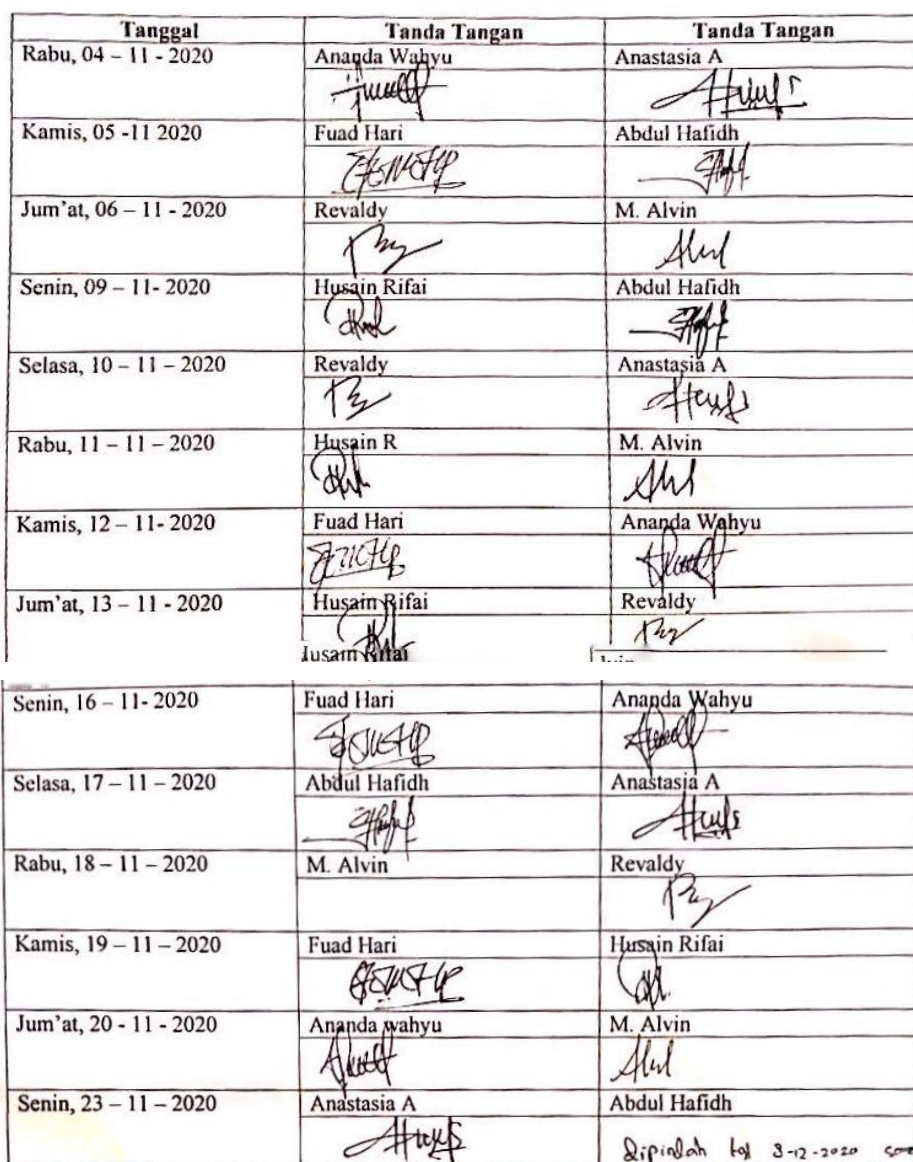 Tanggal Tanda Tangan Tanda Tangan
Rabu, 04 – 11 - 2020 Ananda Wahyu Anastasia A
Kamis, 05 -11 2020 Fuad Hari Abdul Hafidh
Jum'at, 06 – 11 - 2020 Revaldy M. Alvin
Senin, 09 – 11- 2020 Husain Rifai Abdul Hafidh
Selasa, 10 – 11 – 2020 Revaldy Anastasia A
Rabu, 11 – 11 – 2020 Husain R M. Alvin
Kamis, 12 – 11- 2020 Fuad Hari Ananda Wahyu
Jum'at, 13 – 11 - 2020 Husain Rifai Revaldy
Husain Rifai
Senin, 16 – 11- 2020 Fuad Hari Ananda Wahyu
Selasa, 17 – 11 – 2020 Abdul Hafidh Anastasia A
Rabu, 18 – 11 – 2020 M. Alvin Revaldy
Kamis, 19 – 11 – 2020 Fuad Hari Husain Rifai
Jum'at, 20 - 11 - 2020 Ananda wahyu M. Alvin
Senin, 23 – 11 – 2020 Anastasia A Abdul Hafidh
Dipindah 3-12-2020